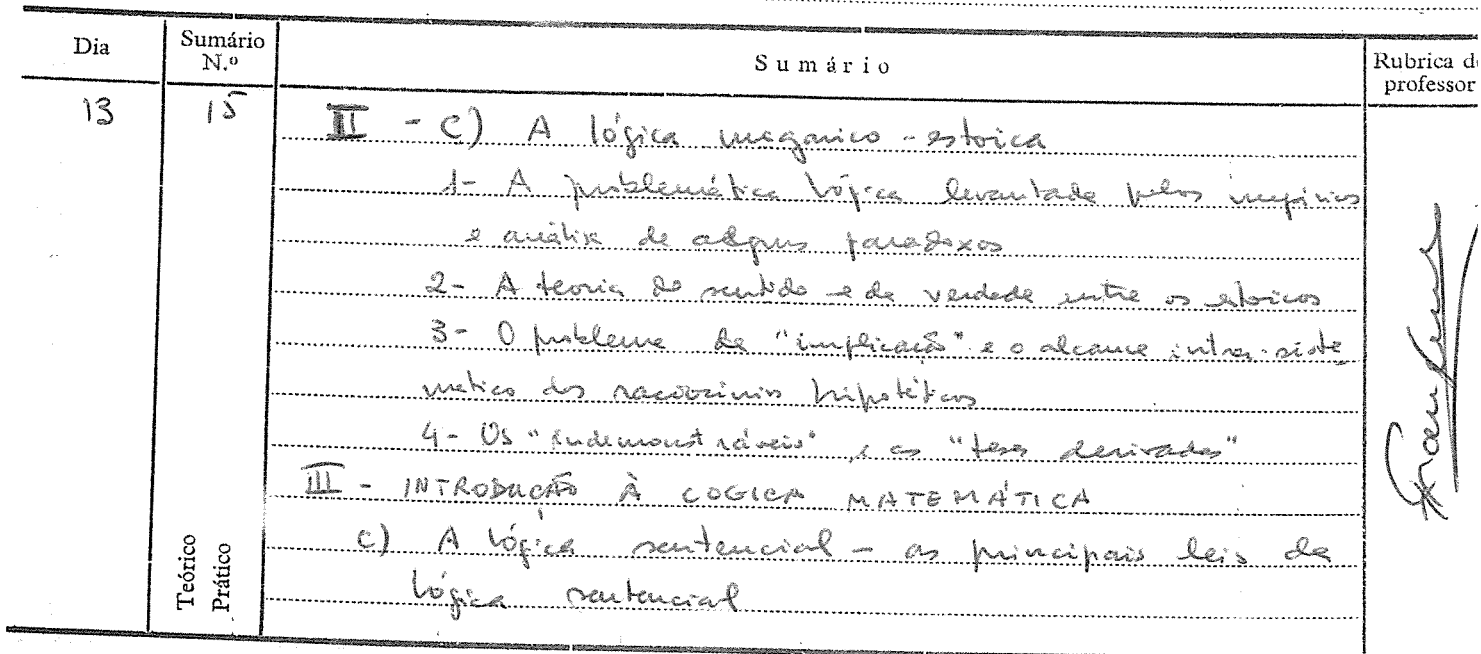 Dia
Sumário N.º
Sumário
Rubrica do professor
13
15
II - C) A lógica megarico-estoica
1- A problemática lógica levantada pelos megáricos
e análise de alguns paradoxos
2- A teoria do sentido e da verdade entre os estoicos
3- O problema da "implicação" e o alcance intra-siste
matico dos raciocínios hipotéticos
4- Os "indemonstráveis" e as "teses derivadas"
III - INTRODUÇÃO À LOGICA MATEMÁTICA
c) A lógica sentencial - as principais leis da
lógica sentencial
Teórico
Prático